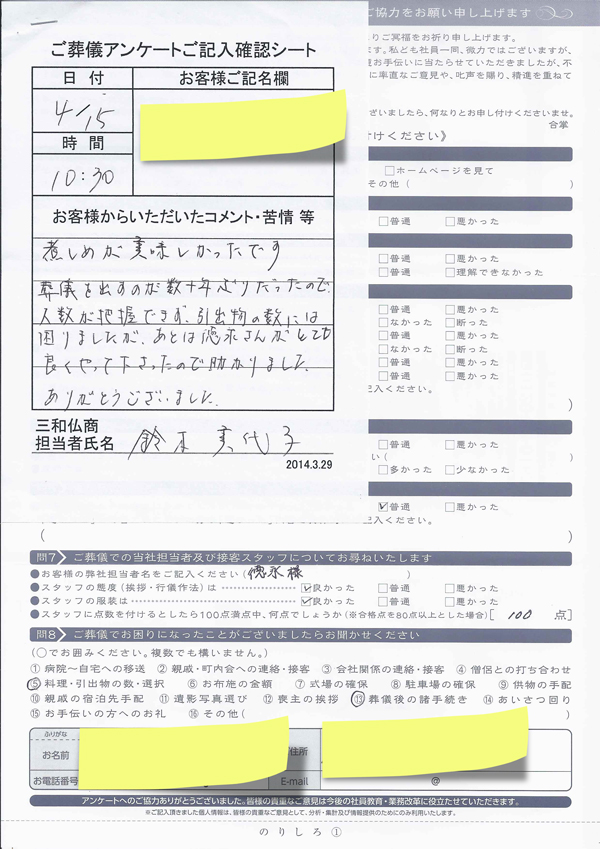 ご協力をお願い申し上げます
ご葬儀アンケートご記入確認シート
日付
お客様ご記名欄
4/15
時間
10:30
お客様からいただいたコメント・苦情 等
煮しめが美味しかったです
葬儀を出すのが数十年ぶりだったので
人数が把握できず、引出物の数には
困りましたが、あとは徳永さんがとても
良くやって下さったので助かりました。
ありがとうございました。
三和仏商
担当者氏名 鈴木 美代子
2014.3.29
りご冥福をお祈り申し上げます。
ます。私ども社員一同、微力ではございますが、
お手伝いに当たらせていただきましたが、不
に率直なご意見や、叱声を賜り、精進を重ねて
ざいましたら、何なりとお申し付けくださいませ。
合掌
付けください》
□ホームページを見て
その他（ ）
□普通 □悪かった
□普通 □悪かった
□普通 □理解できなかった
□普通 □悪かった
□なかった □断った
□普通 □悪かった
□なかった □断った
□普通 □悪かった
□普通 □悪かった
記入ください。
）
□普通 □悪かった
い（ ）
□多かった □少なかった
☑普通 □悪かった
記入ください。
（ ）
問7 ご葬儀での当社担当者及び接客スタッフについてお尋ねいたします
●お客様の弊社担当者名をご記入ください（徳永様 ）
●スタッフの態度（挨拶・行儀作法）は ☑良かった □普通 □悪かった
●スタッフの服装は ☑良かった □普通 □悪かった
●スタッフに点数を付けるとしたら100点満点中、何点でしょうか（※合格点を80点以上とした場合）[ 100 点]
問8 ご葬儀でお困りになったことがございましたらお聞かせください
（○でお囲みください。複数でも構いません。）
① 病院〜自宅への移送 ② 親戚・町内会への連絡・接客 ③ 会社関係の連絡・接客 ④ 僧侶との打ち合わせ
⑤ 料理・引出物の数・選択 ⑥ お布施の金額 ⑦ 式場の確保 ⑧ 駐車場の確保 ⑨ 供物の手配
⑩ 親戚の宿泊先手配 ⑪ 遺影写真選び ⑫ 喪主の挨拶 ⑬ 葬儀後の諸手続き ⑭ あいさつ回り
⑮ お手伝いの方へのお礼 ⑯ その他（ ）
ふりがな
お名前
住所
お電話番号
E-mail @
アンケートへのご協力ありがとうございました。皆様の貴重なご意見は今後の社員教育・業務改革に役立たせていただきます。
※ご記入頂きました個人情報は、皆様の貴重なご意見として、分析・集計及び情報提供のためにのみ利用いたします。
のりしろ①